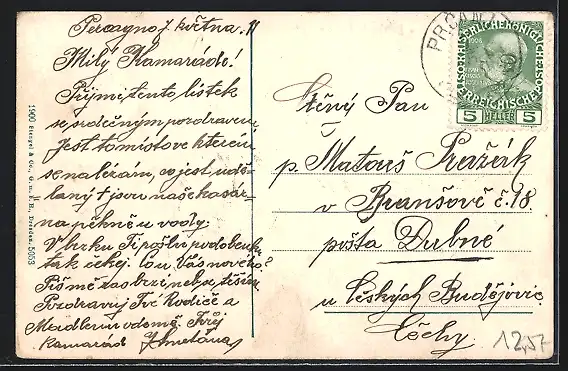 Percagno 7 května 11
Milý Kamaráde!
Přijmi tento lístek
se srdečným pozdravem
Jest to místo ve kterém
se nalézám, co jest
naše kasár-
na pěkně u vody.
V brku Ti pošlu podobenku
tak čekej. Co u Vás nového?
Piš mě zas brzo, nebo se těším
Pozdravuj Tvé Rodiče a
Tvůj
kamarád J. Smetana
1900 Stengel & Co., G. m. b. H., Dresden. 5053
PRČANJ
KAISERLICHE KÖNIGLICHE
ÖSTERREICHISCHE
5 HELLER 5
Ctěný Pan
p. Matouš Pražák
v Branšově č. 18.
pošta Dubné
u Českých Budějovic
Čechy.
12,57